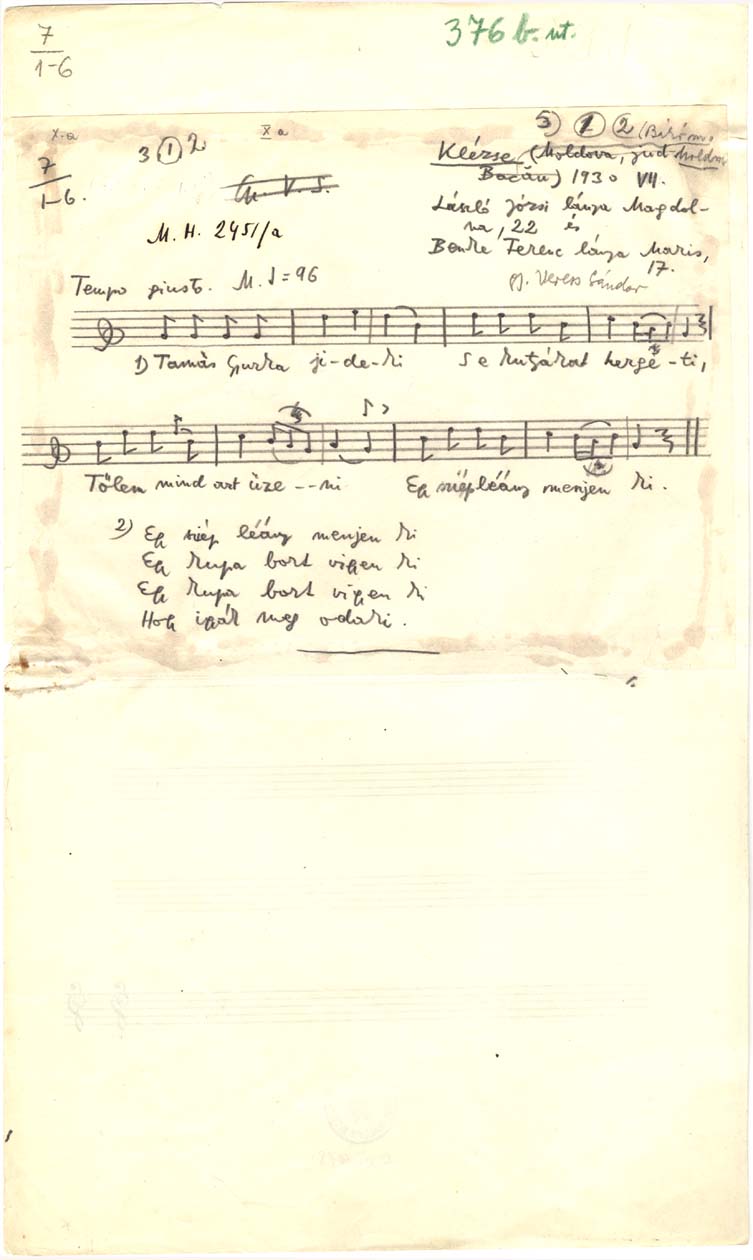 7
1-6
376 b. ut.
X. a
X a
3 1 2
5) 1 2 (Bíró m.
7
1-6.
Klézse (Moldova, jud. Moldva
Bacău) 1930 VII.
László Józsi lánya Magdol-
na, 22 és
Benke Ferenc lánya Maris,
17.
M. H. 2451/a
gy. Veress Sándor
Tempo giusto. M. ♩ = 96
1) Tamás Gyurka ji-de-ki S e kutyákat kergë-ti,
Tőlem mind azt üze--ni Egy szép léány menjen ki.
2) Egy szép léány menjen ki
Egy kupa bort vigyen ki
Egy kupa bort vigyen ki
Hogy igyák meg odaki.